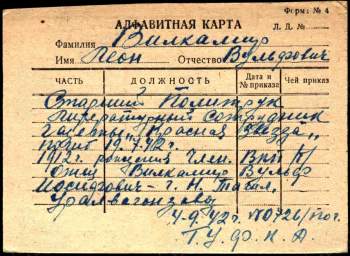 Форма № 4
АЛФАВИТНАЯ КАРТА
Л. Д. №
Фамилия Вилкамир
Имя Леон Отчество Вульфович
ЧАСТЬ ДОЛЖНОСТЬ Дата и № приказа Чей приказ
Старший Политрук
Литературный сотрудник
газеты "Красная Звезда"
погиб 19.7.42г.
1912г. рождения Член. ВКП(б)
Отец Вилкамир Вульф
Иосифович - г. Н. Тагил,
Уралвагонзавод
4.9.42г. №0726/пог.
Г.У.Ф.К.А.